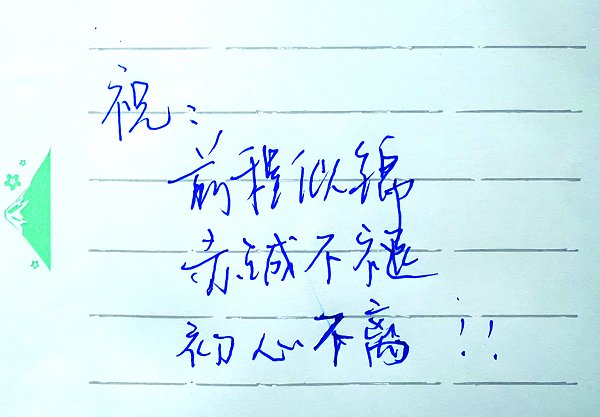 祝：
前程似锦
赤诚不褪
初心不离！！